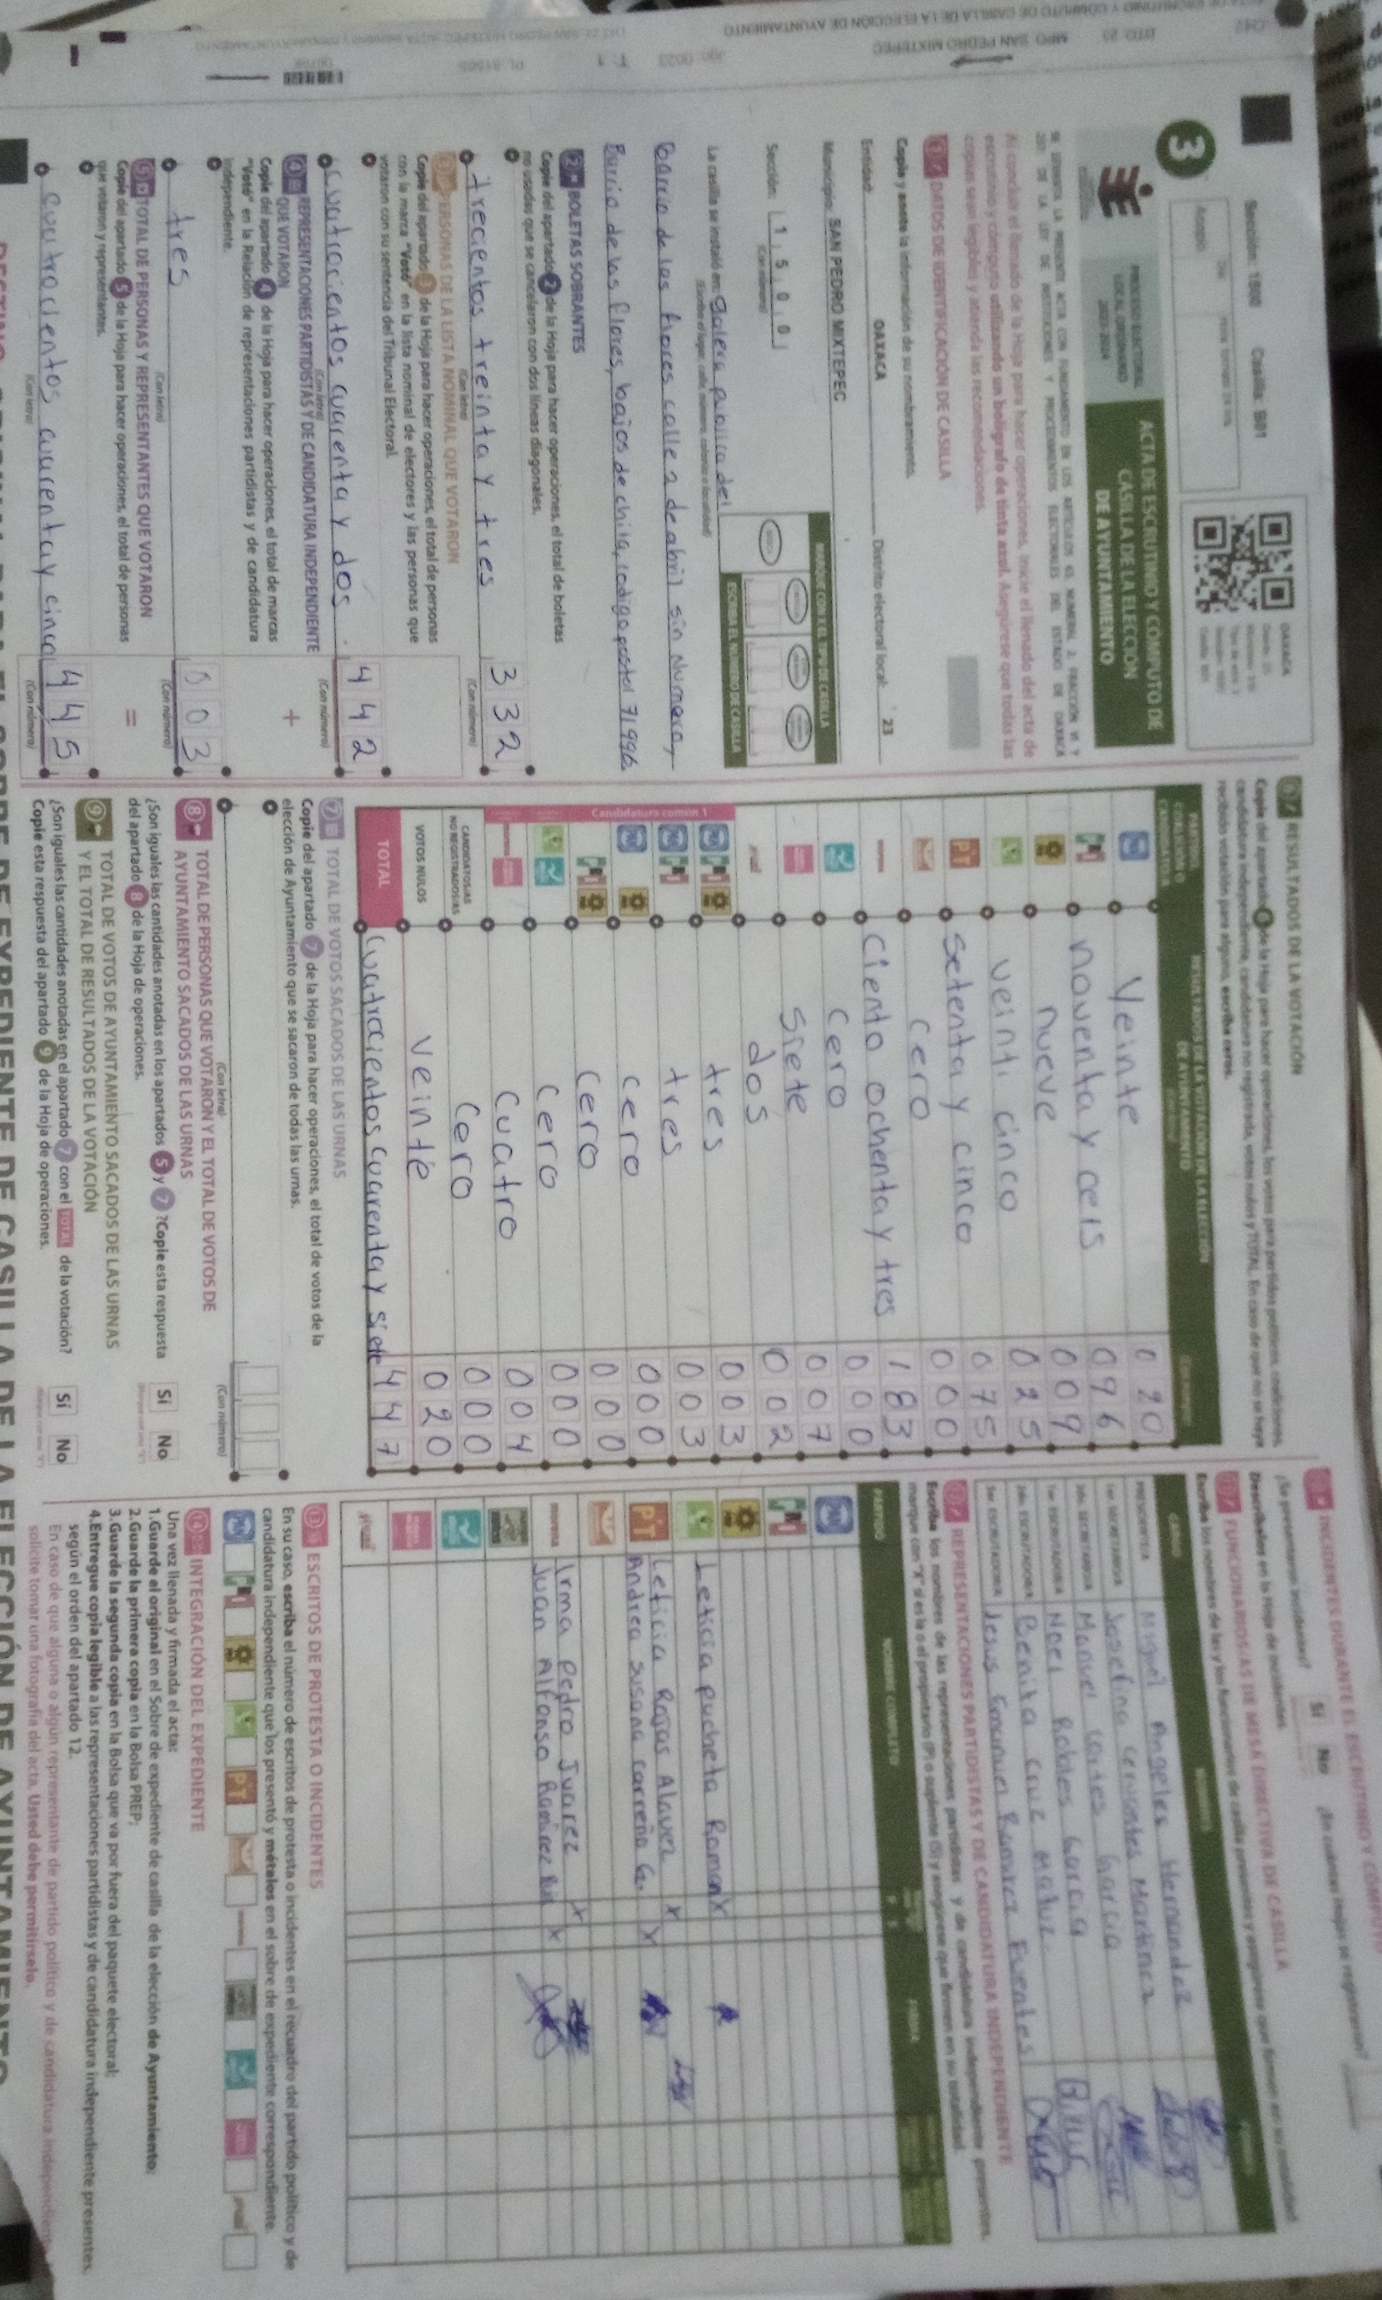 3
Sección: 1500 Casilla: B01
PROCESO ELECTORAL
LOCAL ORDINARIO
2023-2024
ACTA DE ESCRUTINIO Y CÓMPUTO DE
CASILLA DE LA ELECCIÓN
DE AYUNTAMIENTO
Al concluir el llenado de la Hoja para hacer operaciones, inicie el llenado del acta de
escrutinio y cómputo utilizando un bolígrafo de tinta azul. Asegúrese que todas las
copias sean legibles y atienda las recomendaciones.
1 DATOS DE IDENTIFICACIÓN DE CASILLA
Copie y anote la información de su nombramiento.
Entidad: OAXACA Distrito electoral local: 23
Municipio: SAN PEDRO MIXTEPEC
Sección: 1 5 0 0
(Con número)
MARQUE CON X EL TIPO DE CASILLA
ESCRIBA EL NÚMERO DE CASILLA
La casilla se instaló en: galera publica del
(Escriba el lugar, calle, número, colonia o localidad)
barrio de las flores calle 2 de abril sin numero,
Barrio de las flores, bajos de chila, codigo postal 71996
2 BOLETAS SOBRANTES
Copie del apartado 2 de la Hoja para hacer operaciones, el total de boletas
no usadas que se cancelaron con dos líneas diagonales.
trecientos treinta y tres 3 3 2
(Con letra) (Con número)
3 PERSONAS DE LA LISTA NOMINAL QUE VOTARON
Copie del apartado 3 de la Hoja para hacer operaciones, el total de personas
con la marca "Votó" en la lista nominal de electores y las personas que
votaron con su sentencia del Tribunal Electoral.
cuatrocientos cuarenta y dos. 4 4 2
(Con letra) (Con número)
4 REPRESENTACIONES PARTIDISTAS Y DE CANDIDATURA INDEPENDIENTE
QUE VOTARON
+
Copie del apartado 4 de la Hoja para hacer operaciones, el total de marcas
"Votó" en la Relación de representaciones partidistas y de candidatura
independiente.
tres 0 0 3
(Con letra) (Con número)
5 TOTAL DE PERSONAS Y REPRESENTANTES QUE VOTARON
=
Copie del apartado 5 de la Hoja para hacer operaciones, el total de personas
que votaron y representantes.
cuatrocientos cuarenta y cinco 4 4 5
(Con letra) (Con número)
6 RESULTADOS DE LA VOTACIÓN
Copie del apartado 6 de la Hoja para hacer operaciones, los votos para partidos políticos, coaliciones,
candidatura independiente, candidatura no registrada, votos nulos y TOTAL. En caso de que no se haya
recibido votación para alguno, escriba ceros.
PARTIDO,
COALICIÓN O
CANDIDATO/A
RESULTADOS DE LA VOTACIÓN DE LA ELECCIÓN
DE AYUNTAMIENTO
Veinte 0 2 0
noventa y ceis 0 9 6
nueve 0 0 9
veinti cinco 0 2 5
PT setenta y cinco 0 7 5
cero 0 0 0
morena Ciento ochenta y tres 1 8 3
cero 0 0 0
siete 0 0 7
dos 0 0 2
Candidatura común 1
tres 0 0 3
tres 0 0 3
cero 0 0 0
cero 0 0 0
cero 0 0 0
cuatro 0 0 4
CANDIDATOS/AS
NO REGISTRADOS/AS cero 0 0 0
VOTOS NULOS veinte 0 2 0
TOTAL cuatrocientos cuarenta y siete 4 4 7
7 TOTAL DE VOTOS SACADOS DE LAS URNAS
Copie del apartado 7 de la Hoja para hacer operaciones, el total de votos de la
elección de Ayuntamiento que se sacaron de todas las urnas.
(Con letra) (Con número)
8 TOTAL DE PERSONAS QUE VOTARON Y EL TOTAL DE VOTOS DE
AYUNTAMIENTO SACADOS DE LAS URNAS
¿Son iguales las cantidades anotadas en los apartados 5 y 7 ? Copie esta respuesta
del apartado 8 de la Hoja de operaciones.
Sí No
9 TOTAL DE VOTOS DE AYUNTAMIENTO SACADOS DE LAS URNAS
Y EL TOTAL DE RESULTADOS DE LA VOTACIÓN
¿Son iguales las cantidades anotadas en el apartado 7 con el TOTAL de la votación?
Copie esta respuesta del apartado 9 de la Hoja de operaciones.
Sí No
INCIDENTES DURANTE EL ESCRUTINIO Y CÓMPUTO
¿Se presentaron incidentes? Sí No
Descríbalos en la hoja de incidentes
FUNCIONARIOS/AS DE MESA DIRECTIVA DE CASILLA
CARGO NOMBRES
Miguel Angeles Hernandez
Josefina cervantes Martinez
Manuel cortes Garcia
Noel Robles Garcia
Benita cruz Matuz
Jesus Emanuel Ramirez Fuentes
REPRESENTACIONES PARTIDISTAS Y DE CANDIDATURA INDEPENDIENTE
Escriba los nombres de las representaciones partidistas y de candidatura independiente presentes,
marque con "X" si es la o el propietario (P) o suplente (S) y asegúrese que firmen en su totalidad.
PARTIDO NOMBRE COMPLETO P S FIRMA
Leticia pucheta Roman X
Leticia Rojas Alavez X
PT Andrea susana carreño G. X
morena Irma Pedro Juarez X
Juan Alfonso Ramirez X
ESCRITOS DE PROTESTA O INCIDENTES
En su caso, escriba el número de escritos de protesta o incidentes en el recuadro del partido político y de
candidatura independiente que los presentó y métalos en el sobre de expediente correspondiente.
14 INTEGRACIÓN DEL EXPEDIENTE
Una vez llenada y firmada el acta:
1.Guarde el original en el Sobre de expediente de casilla de la elección de Ayuntamiento;
2.Guarde la primera copia en la Bolsa PREP;
3.Guarde la segunda copia en la Bolsa que va por fuera del paquete electoral;
4.Entregue copia legible a las representaciones partidistas y de candidatura independiente presentes,
según el orden del apartado 12.
En caso de que alguna o algún representante de partido político y de candidatura independiente
solicite tomar una fotografía del acta, Usted debe permitírselo.